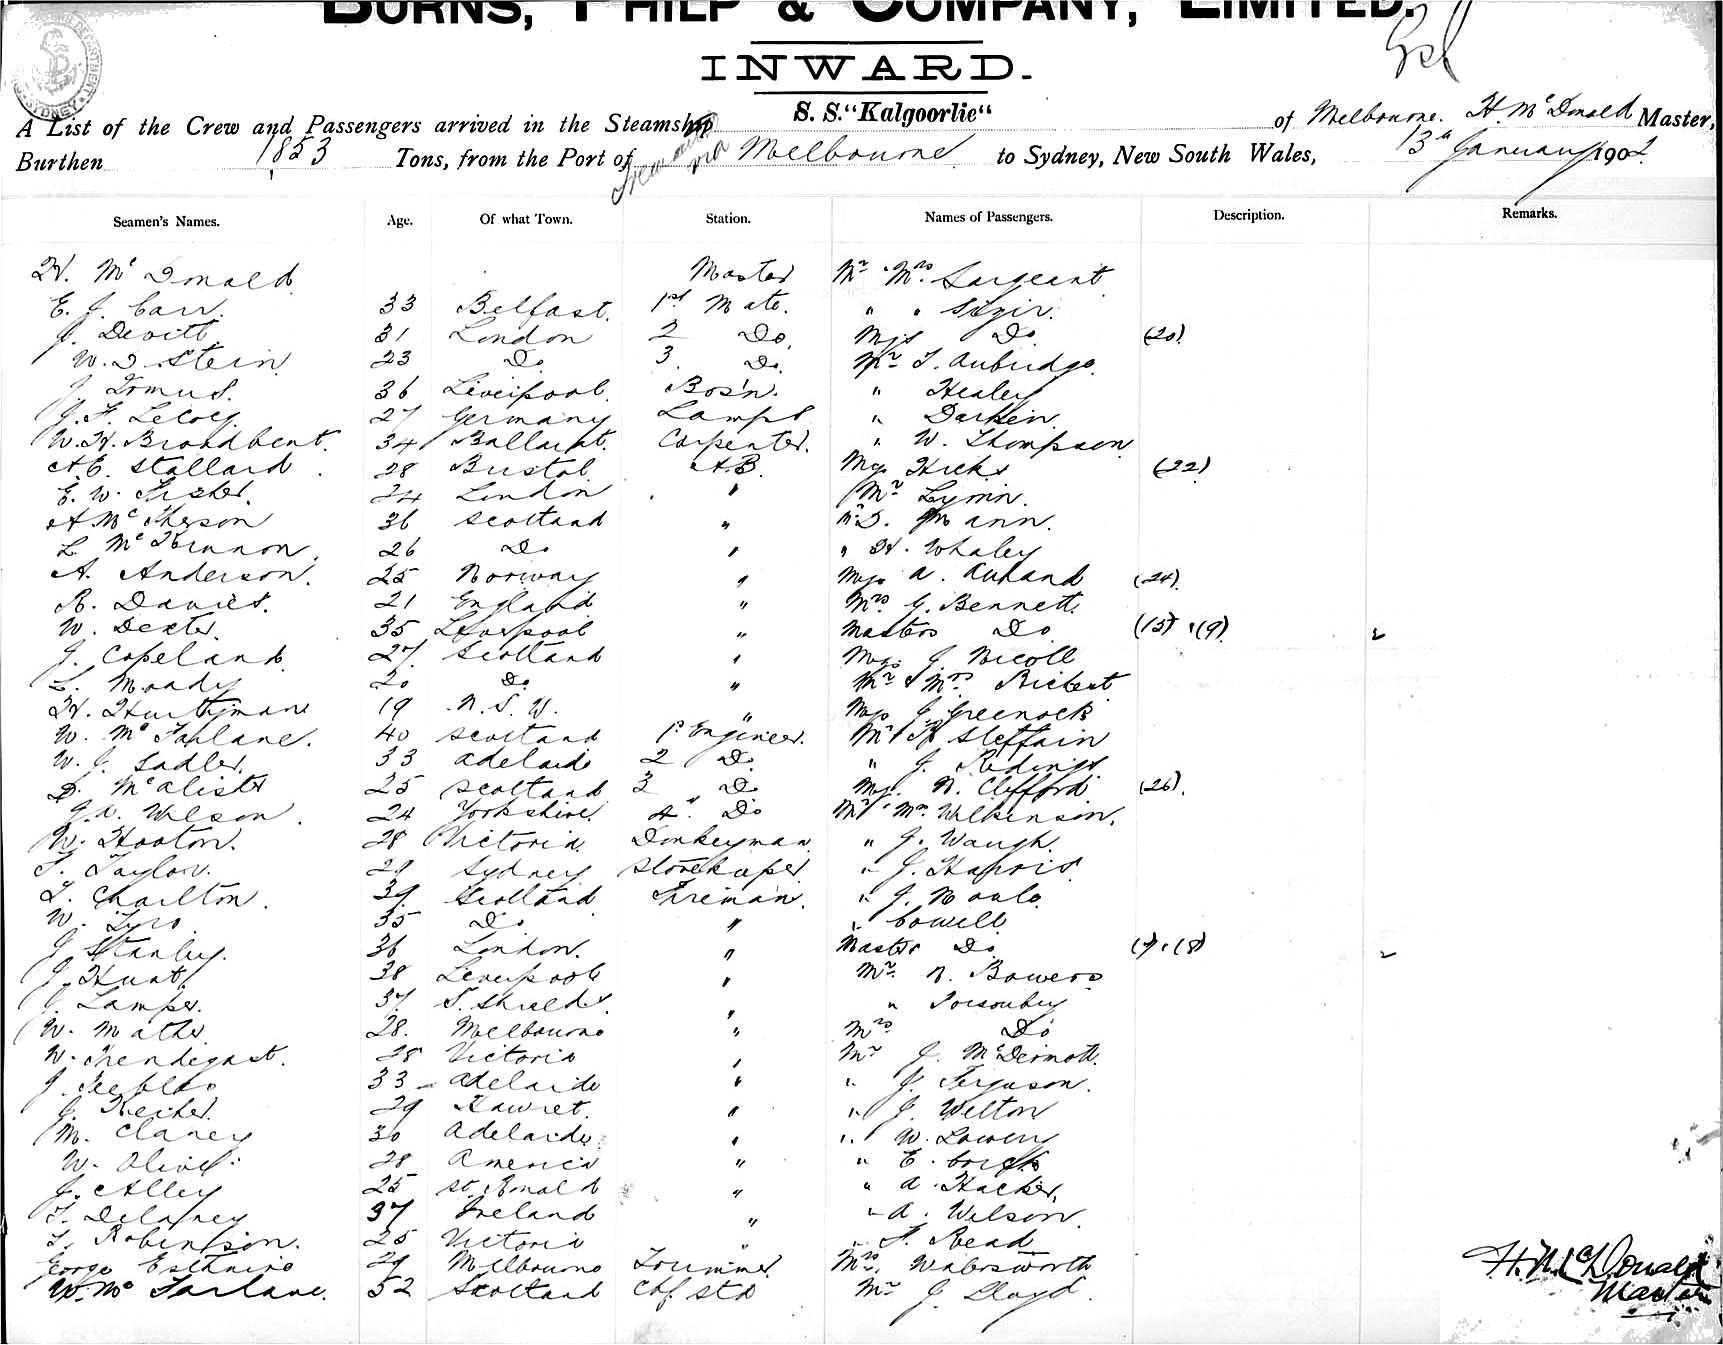 BURNS, PHILP & COMPANY, LIMITED.
INWARD.
A List of the Crew and Passengers arrived in the Steamship S. S. "Kalgoorlie" of Melbourne. H. McDonald Master,
Burthen 1853 Tons, from the Port of Fremantle via Melbourne to Sydney, New South Wales, 13th January 1902.
Seamen's Names. Age. Of what Town. Station. Names of Passengers. Description. Remarks.
H. McDonald Master Mr & Mrs Sargeant
E. J. Carr. 33 Belfast. 1st Mate. " "
J. Devitt 31 London 2 Do. Miss Do (20)
W. D. Stein 23 Do 3 Do. Mr T. Aubridge.
J. 36 Liverpool. Bos'n. " Healey
J. F. Lecoy. 27 Germany Lamps " Darkein
W. H. Broadbent. 34 Ballarat. Carpenter. " W. Thompson
A. E. Stallard 28 Bristol. A.B. Miss Hicks (22)
E. W. Fisher. 24 London " Mr Lynn.
A McPherson 36 Scotland " D. Mann.
L McKinnon. 26 Do " " H. Whaley
A. Anderson. 25 Norway " Miss A. (24)
R. Davies. 21 England " Mrs G. Bennett.
W. Dexter. 35 Liverpool " Masters Do (13) & (9) 2
J. Copeland 27. Scotland " Miss J. Nicoll
L. Moody 20 Do " Mr & Mrs Rickert
H. 19 N. S. W. " Miss J Greenock
W. McFarlane. 40 Scotland 1st Engineer. Mr Steffain
W. J. Sadler. 33 Adelaide 2 Do " J.
D. McAlister 25 Scotland 3 Do Miss N. Clifford (26).
J. W. Wilson. 24 Yorkshire. 4 Do Mr & Mrs Wilkinson.
W. Hooton. 28 Victoria Donkeyman " J. Waugh.
T. Taylor. 29 Sydney Storekeeper " J. Harris
T. Charlton. 39 Scotland Fireman. " J.
W. 35 Do " " Cowell
J Stanley. 36 London. " Masters Do (7) & (8) 2
J. Hunt 38 Liverpool " Mr. N. Bowers
J. Lamper. 37 S. Shields. " "
W. Mather 28. Melbourne " Mrs Do
W. Prendegast. 28 Victoria " Mr J. McDermott.
J Peebles 33 Adelaide " " J. Ferguson.
J. 29 " " J. Welton
M. Clancy 30 Adelaide " " W. Lowery
W. Oliver 28 America " " E.
J. Alley 25 St. Ronald " " A. Hacker.
T. Delaney 37 Ireland " " A. Wilson.
T. Robinson. 25 Victoria " " T. Read
George 29 Melbourne Trimmer. Mrs.
W. McFarlane. 52 Scotland Chf Std Mr J. Lloyd.
H. McDonald
Master